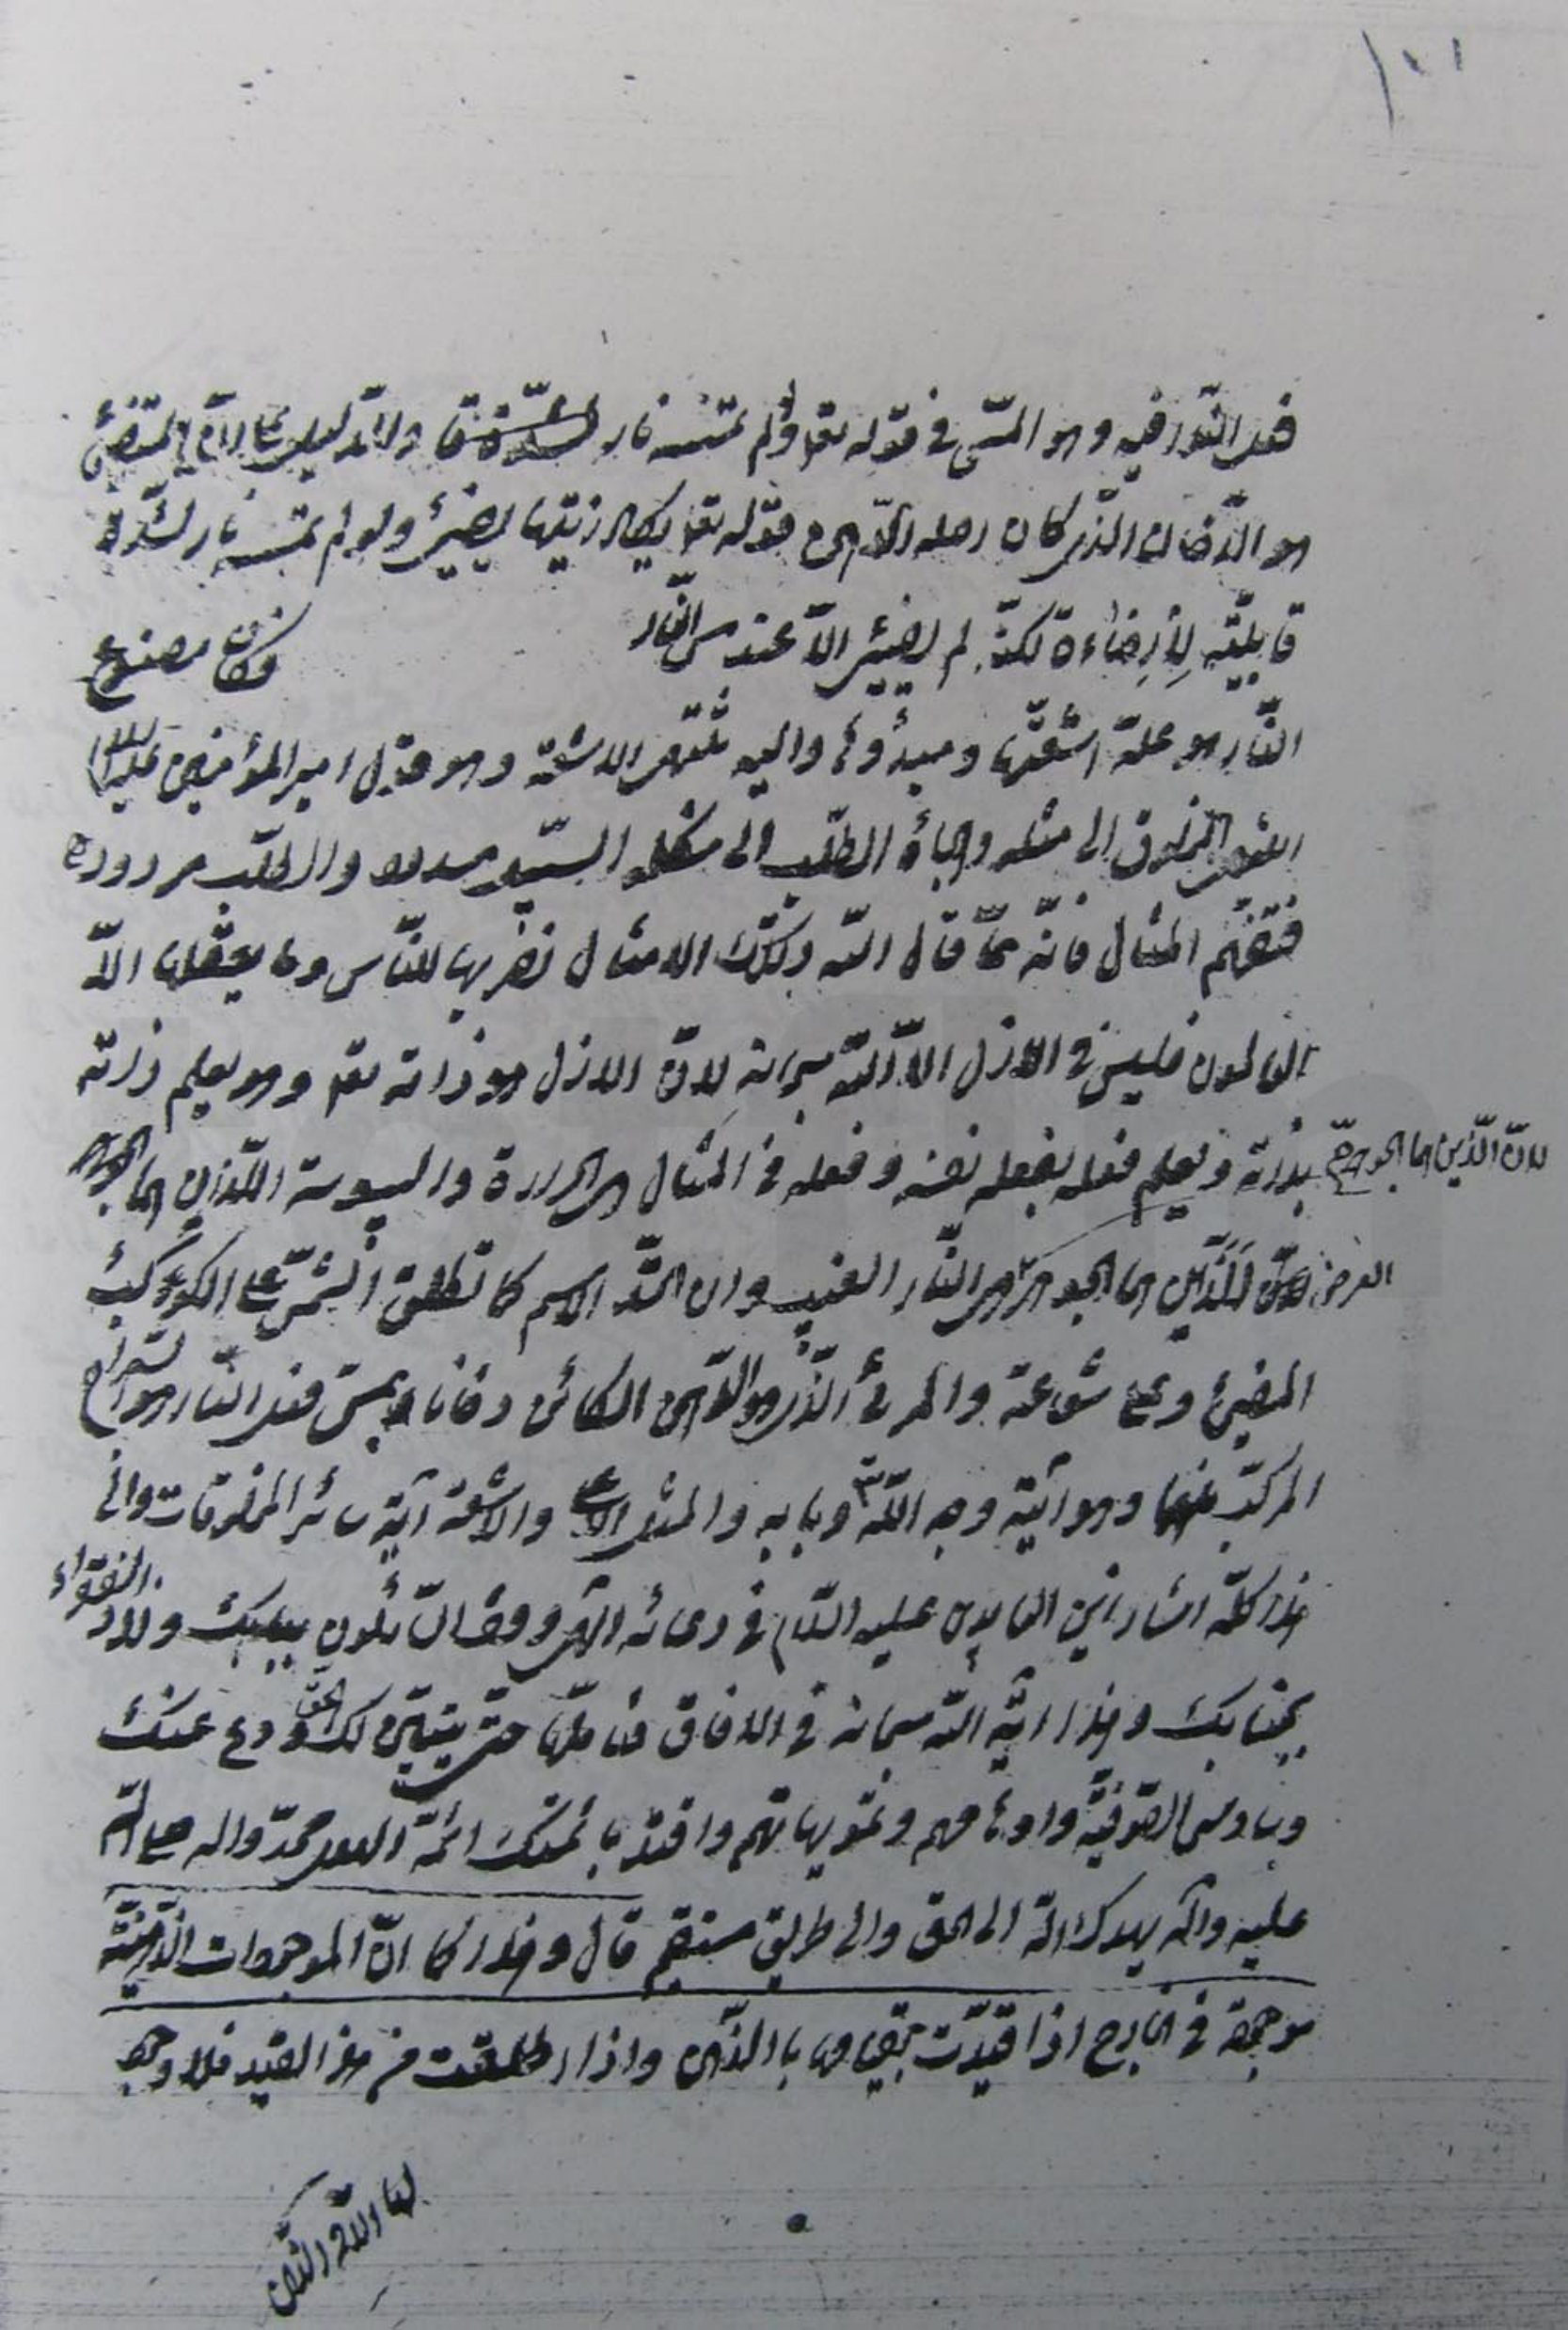 فعل النّور فيه وهو المسّ في قوله تعا ولم تمسسه نار
هو الدّخان الذّي كان اصله الدّهن قوله تعا يكاد زيتها يضيئ ولو لم تمسسه نار لشدّة
قابليّته لِلْإِضاءة لكنّه لم يضيئ الّا عند مسّ النّار فكان مصنوع
النّار هو علّة اشعّتها ومبدؤها واليه تنتهي الاشعّة وهو قول امير المؤمنين عليه السلام
انتهى المخلوق الى مثله والجأه الطلب الى شكله السّبيل مسدود والطلب مردود
فتفهّم المثال فانّه ممّا قال الله وتلك الامثال نضربها للنّاس وما يعقلها الّا
العالمون فليس في الازل الّا الله سبحانه لانّ الازل هو ذاته تعا وهو يعلم ذاته
بذاته ويعلم فعله بفعله نفسه وفعله في المثال هي الحرارة واليبوسة اللّذان هما الجوهر
لانّ الذّين هما الجوهر
العرض الذّين هما الجوهر هي النّار الغيب وان اتّحد الاسم كما تطلق الشّمس على الكوكب
المضيئ وعلى شعاعه والمرئي الذّي هو الدّهن الكائن دخانا بمسّ فعل النّار هو السّراج
المركّب منهما وهو آية وجه اللّه وبابه والمثل الاعلى والاشعّة آية سائر المخلوقات والى
هذا كلّه اشار زين العابدين عليه السّلام في دعائه الهي وقف السّائلون ببابك ولاذ الفقراء
بجنابك وهذا آية الله سبحانه في الافاق فتأمّلها حتّى يتبيّن لك الحق ودع عنك
وساوس الصّوفيّة واوهامهم وتمويهاتهم واقتد بائمّتك ائمّة الهدى محمّد واله صلى الله
عليه وآله يهدك الله الى الحق والى طريق مستقيم قال وهذا كما انّ الموجودات الذّهنيّة
موجودة في الخارج اذا قيّدت بقيامها بالذّهن واذا اطلقت من هذا القيد فلا وجود
لها الّا في الذّهن